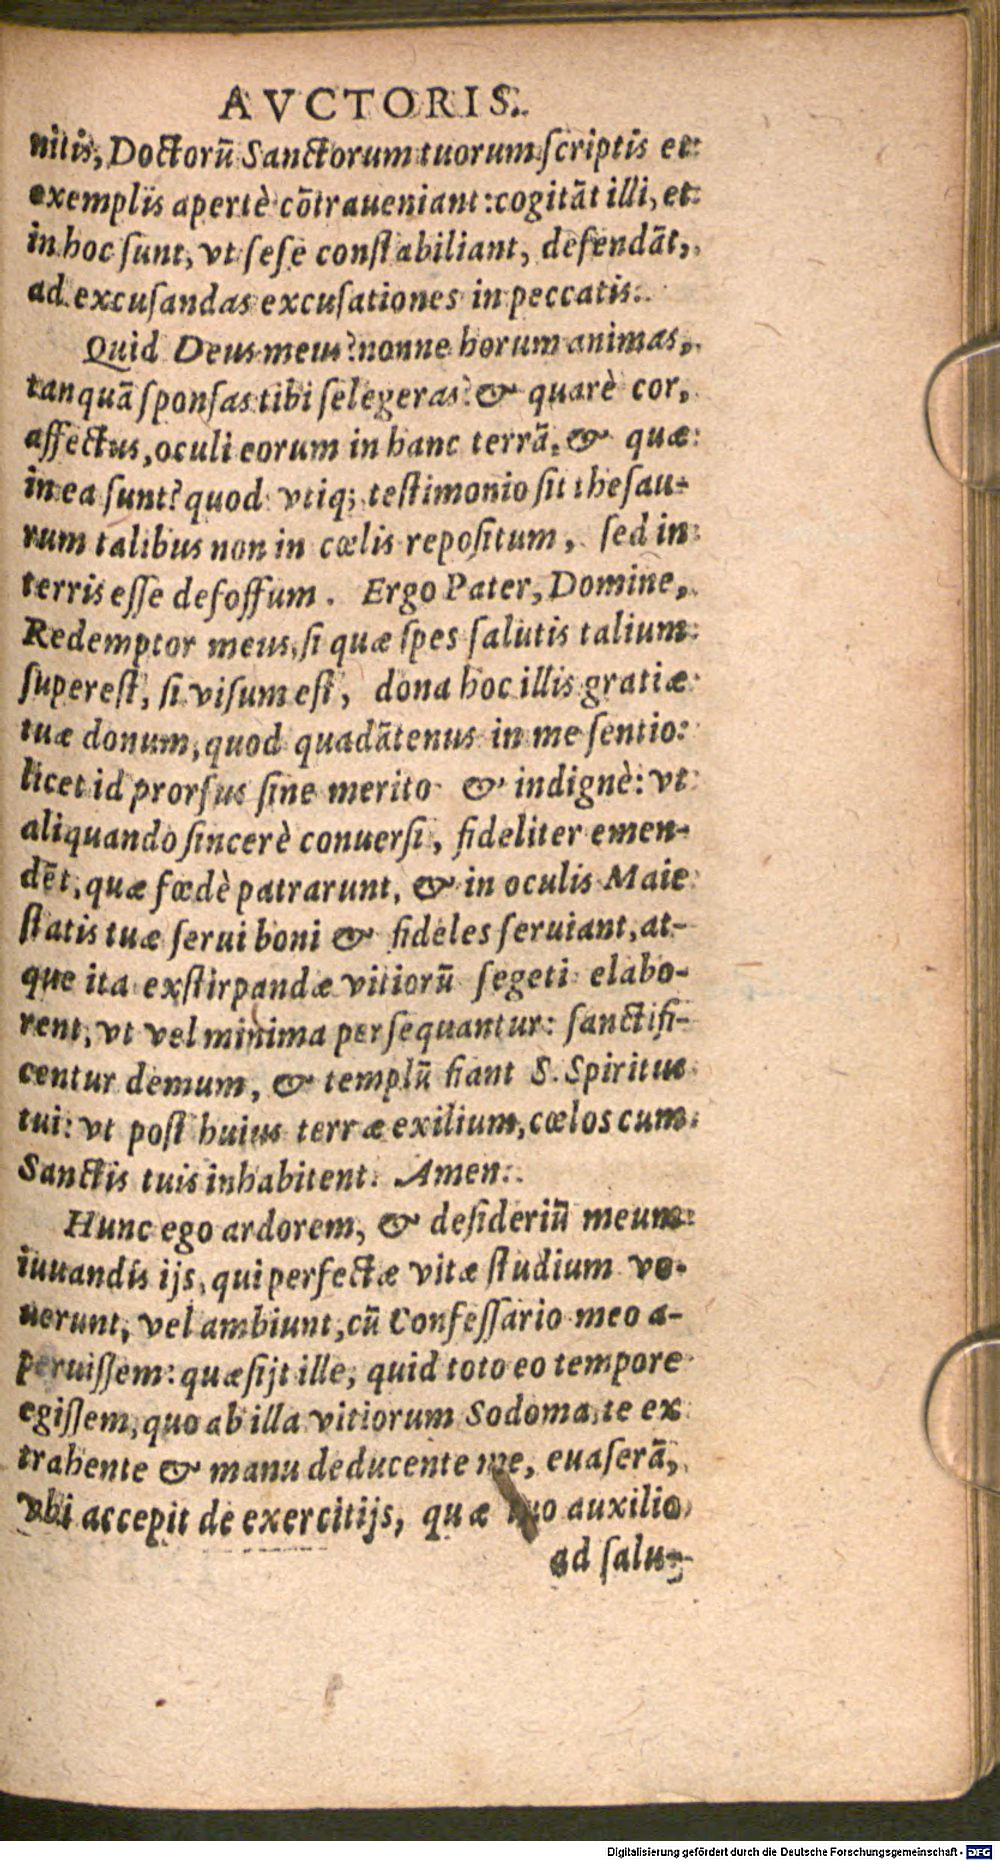 AVCTORIS.
nitis, Doctorū Sanctorum tuorum scriptis et
exemplis apertè cōtraueniant: cogitāt illi, et
in hoc sunt, vt sese constabiliant, defendāt,
ad excusandas excusationes in peccatis.
Quid Deus meus? nonne horum animas,
tanquā sponsas tibi selegeras? & quarè cor,
affectus, oculi eorum in hanc terrā, & quæ
in ea sunt? quod vtiq; testimonio sit thesau-
rum talibus non in cœlis repositum, sed in
terris esse defossum. Ergo Pater, Domine,
Redemptor meus, si quæ spes salutis talium
superest, si visum est, dona hoc illis gratiæ
tuæ donum, quod quadātenus in me sentio:
licet id prorsus sine merito & indignè: vt
aliquando sincerè conuersi, fideliter emen-
dēt, quæ fœdè patrarunt, & in oculis Maie
statis tuæ serui boni & fideles seruiant, at-
que ita exstirpandæ vitiorū segeti elabo-
rent, vt vel minima persequantur: sanctifi-
centur demum, & templū fiant S. Spiritus
tui: vt post huius terræ exilium, cœlos cum
Sanctis tuis inhabitent. Amen.
Hunc ego ardorem, & desideriū meum
iuuandis ijs, qui perfectæ vitæ studium vo-
uerunt, vel ambiunt, cū Confessario meo a-
peruissem: quæsijt ille, quid toto eo tempore
egissem, quo ab illa vitiorum Sodoma, te ex
trahente & manu deducente me, euaserā,
vbi accepit de exercitijs, quæ tuo auxilio
ad salu-
Digitalisierung gefördert durch die Deutsche Forschungsgemeinschaft - DFG